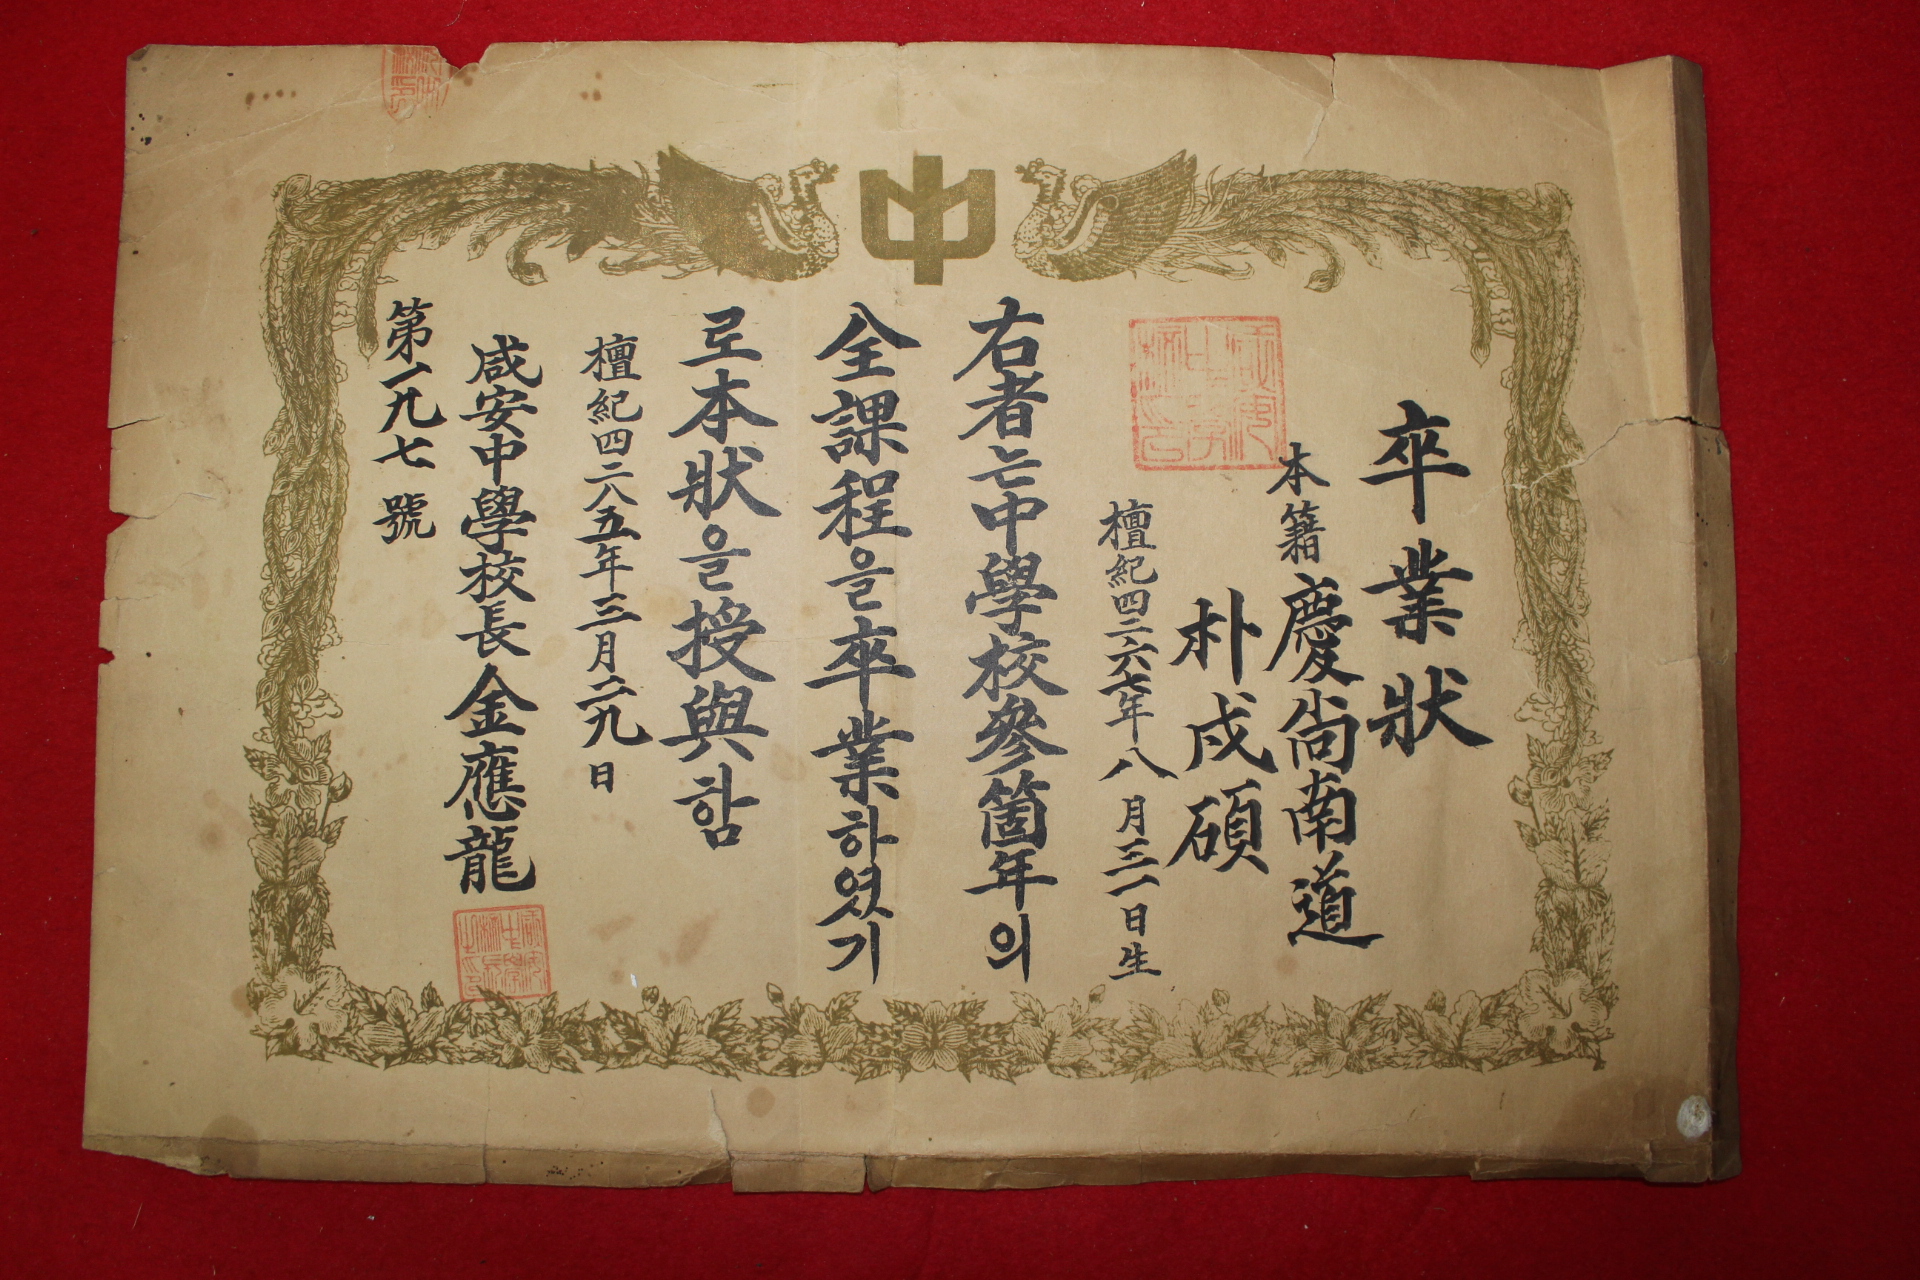 卒業狀
本籍 慶尙南道
朴戍碩
檀紀四二六七年八月三一日生
右者는中學校參箇年의
全課程을卒業하였기
로本狀을授與함
檀紀四二八五年三月二九日
咸安中學校長 金應龍
第一九七號